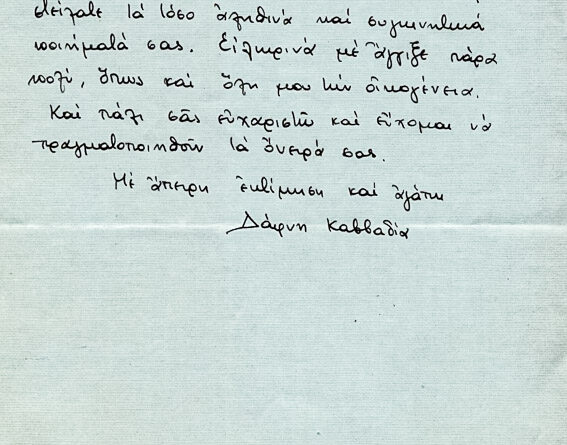 στείλατε τά τόσο ἀληθινά καί συγκινητικά
ποιήματά σας. Εἰλικρινά μέ ἄγγιξε πάρα
πολύ, ὅπως καί ὅλη μου τήν οἰκογένεια.
Καί πάλι σᾶς εὐχαριστῶ καί εὔχομαι νά
πραγματοποιηθοῦν τά ὄνειρά σας.
Μέ ἄπειρη ἐκτίμηση καί ἀγάπη
Δάφνη Καββαδία